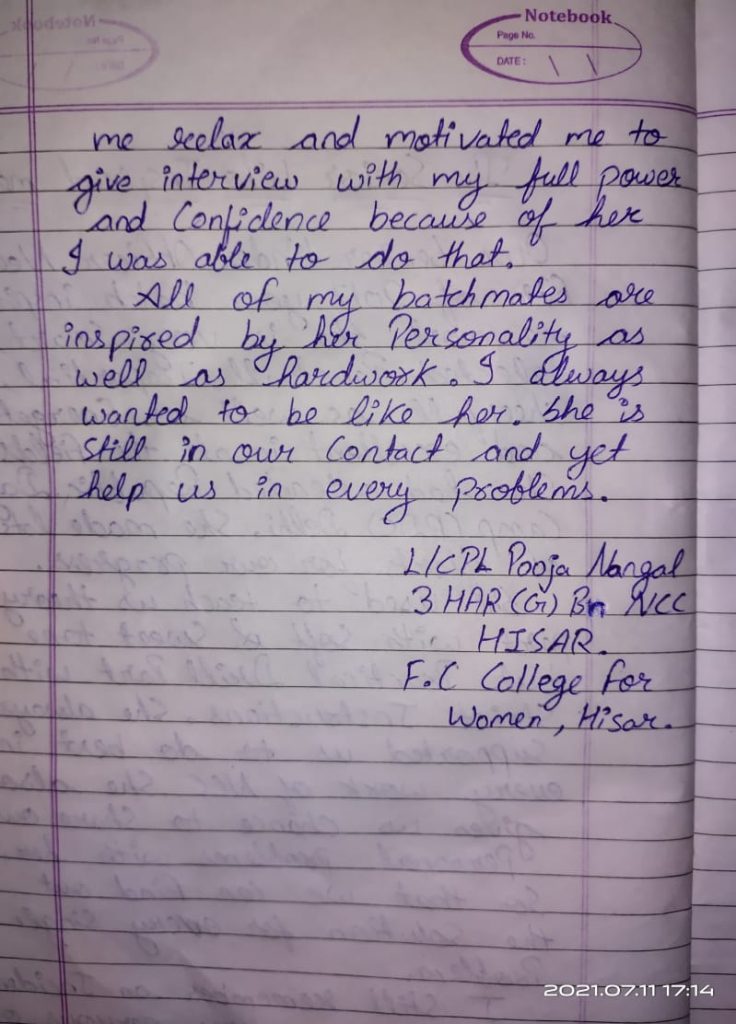 Notebook
Page No.
DATE :
me reelax and motivated me to
give interview with my full power
and Confidence because of her
I was able to do that.
All of my batchmates are
inspired by her Personality as
well as hardwork. I always
wanted to be like her. She is
still in our Contact and yet
help us in every problems.
L/CPL Pooja Nangal
3 HAR (G) Bn NCC
HISAR.
F.C College for
Women, Hisar.
2021.07.11 17:14